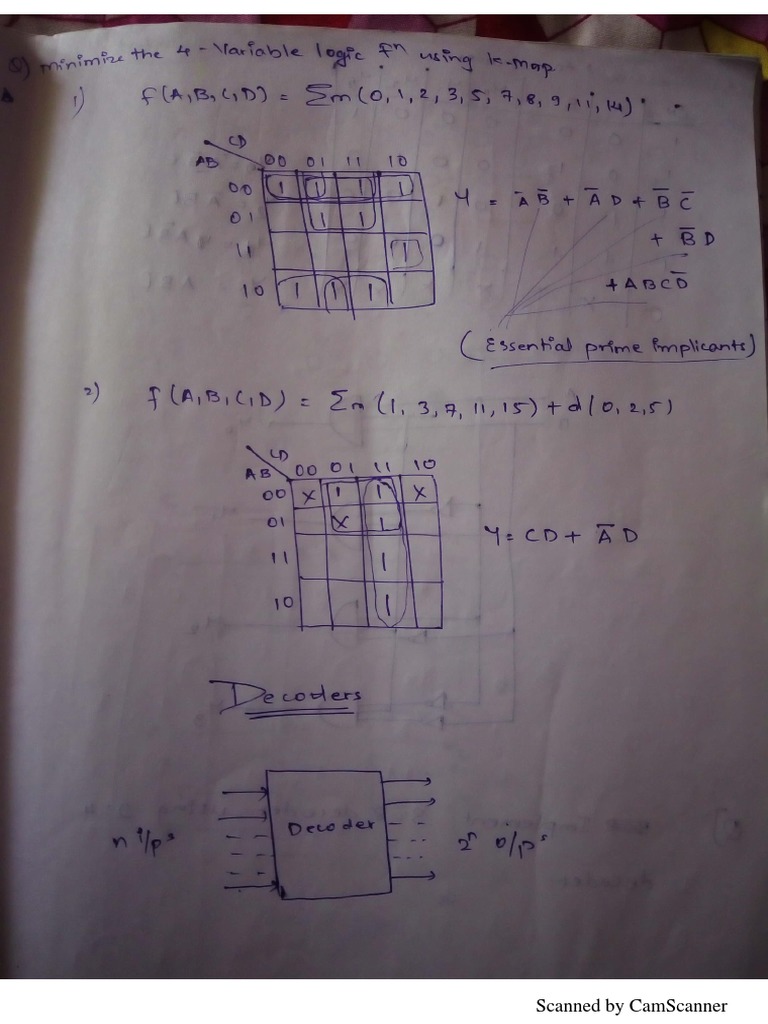 Q) Minimize the 4-variable logic fⁿ using k-map
1) f(A,B,C,D) = Σm(0,1,2,3,5,7,8,9,11,14).
CD
AB 00 01 11 10
00 1 1 1 1
01 1 1
11 1
10 1 1 1
Y = A̅B̅ + A̅D + B̅C̅
+ B̅D
+ABCD̅
(Essential prime implicants)
2) f(A,B,C,D) = Σm(1,3,7,11,15)+d(0,2,5)
CD
AB 00 01 11 10
00 X 1 1 X
01 X 1
11 1
10 1
Y = CD + A̅D
Decoders
n i/pˢ
Decoder
2ⁿ o/pˢ
Scanned by CamScanner